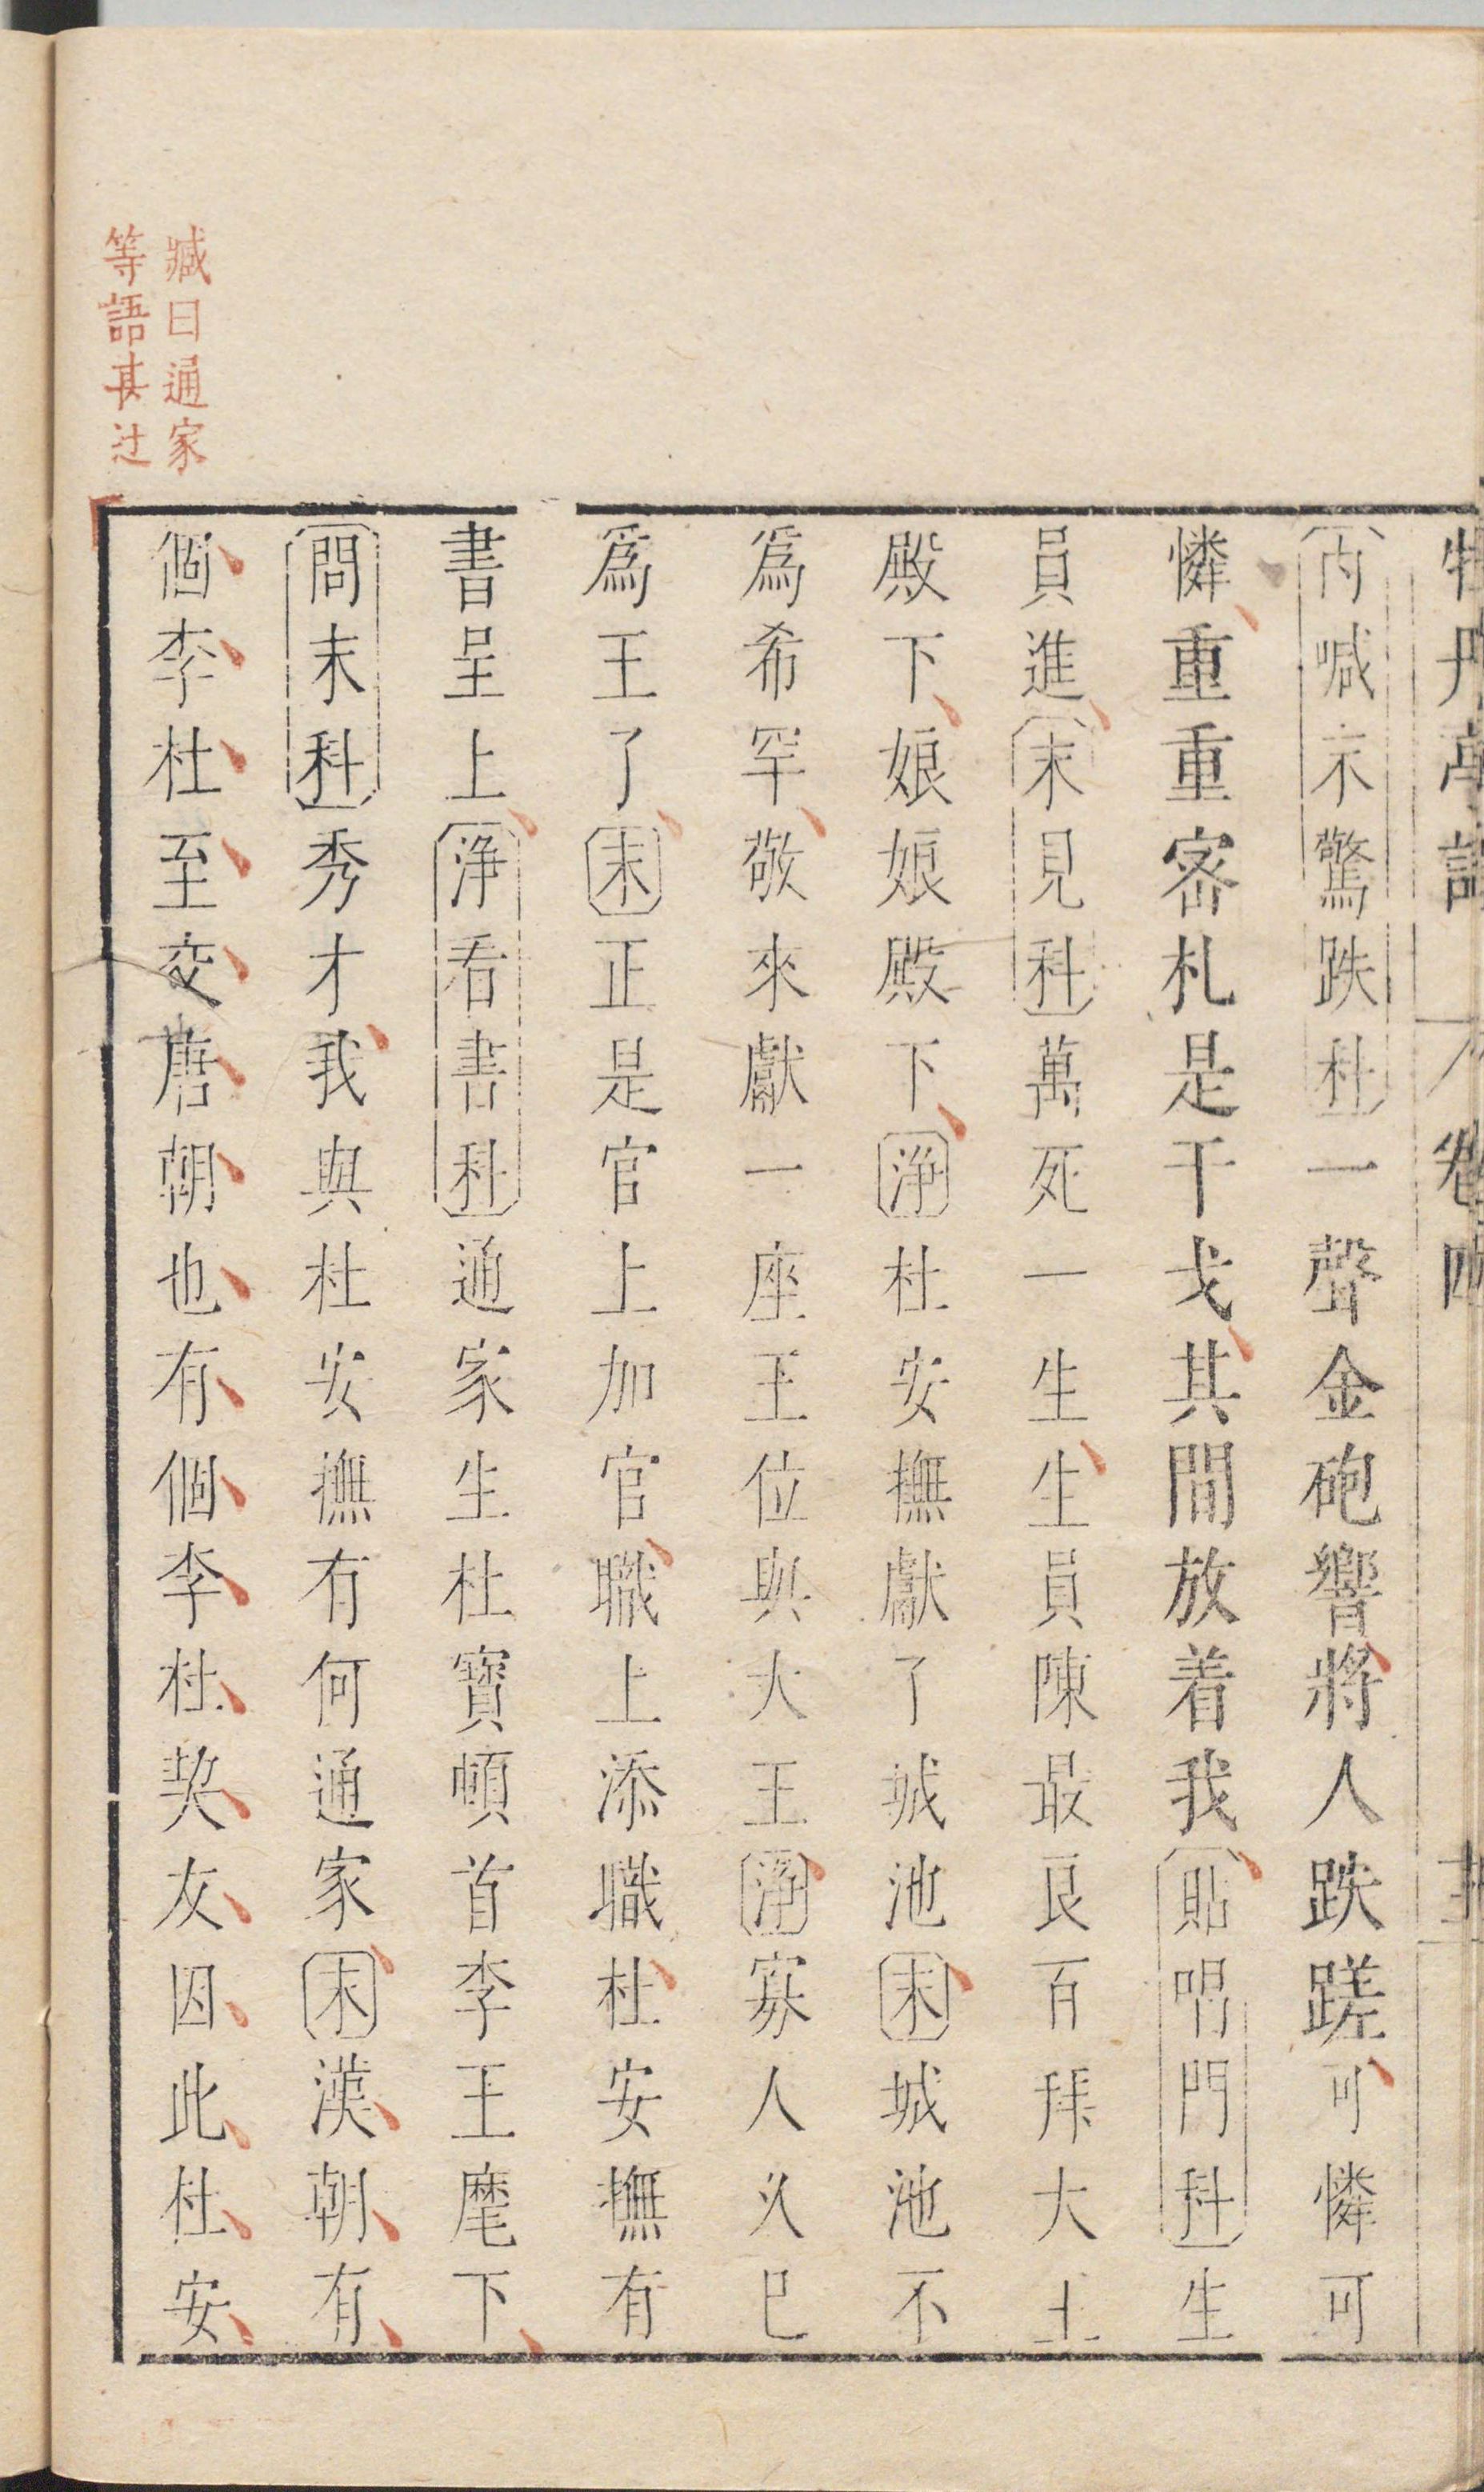 牡丹亭記 卷四
內喊末驚跌科一聲金砲響將人跌蹉可憐可
憐重重密札是干戈其間放着我貼唱門科生
員進末見科萬死一生生員陳最良百拜大王
殿下娘娘殿下淨杜安撫獻了城池末城池不
爲希罕敬來獻一座王位與大王淨寡人久已
爲王了末正是官上加官職上添職杜安撫有
書呈上淨看書科通家生杜寶頓首李王麾下
問末科秀才我與杜安撫有何通家末漢朝有
個李杜至交唐朝也有個李杜契友因此杜安
臧曰通家
等語甚迂